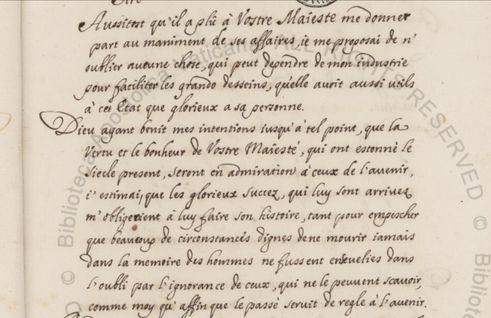 Sire
Aussitost qu'il a plû à Vostre Maiesté me donner
part au maniment de ses affaires, ie me proposai de n'
oublier aucune chose, qui peut dependre de mon industrie
pour faciliter les grands desseins, qu'elle avoit aussi utils
à cet Estat que glorieux a sa personne.
Dieu ayant bénit mes intentions iusqu'à tel point, que la
Vertu et le bonheur de Vostre Maiesté, qui ont estonné le
siecle present, seront en admiration à ceux de l'avenir,
i'estimai, que les glorieux succez, qui luy sont arrivez
m'obligeoient à luy faire son histoire, tant pour empescher
que beaucoup de circonstances dignes de ne mourir iamais
dans la memoire des hommes ne fussent enseuelies dans
l'oubli par l'ignorance de ceux, qui ne le peuvent scavoir,
comme moy qu'affin que le passé servit de regle à l'avenir.
© Biblioteca
RESERVED
© Biblioteca